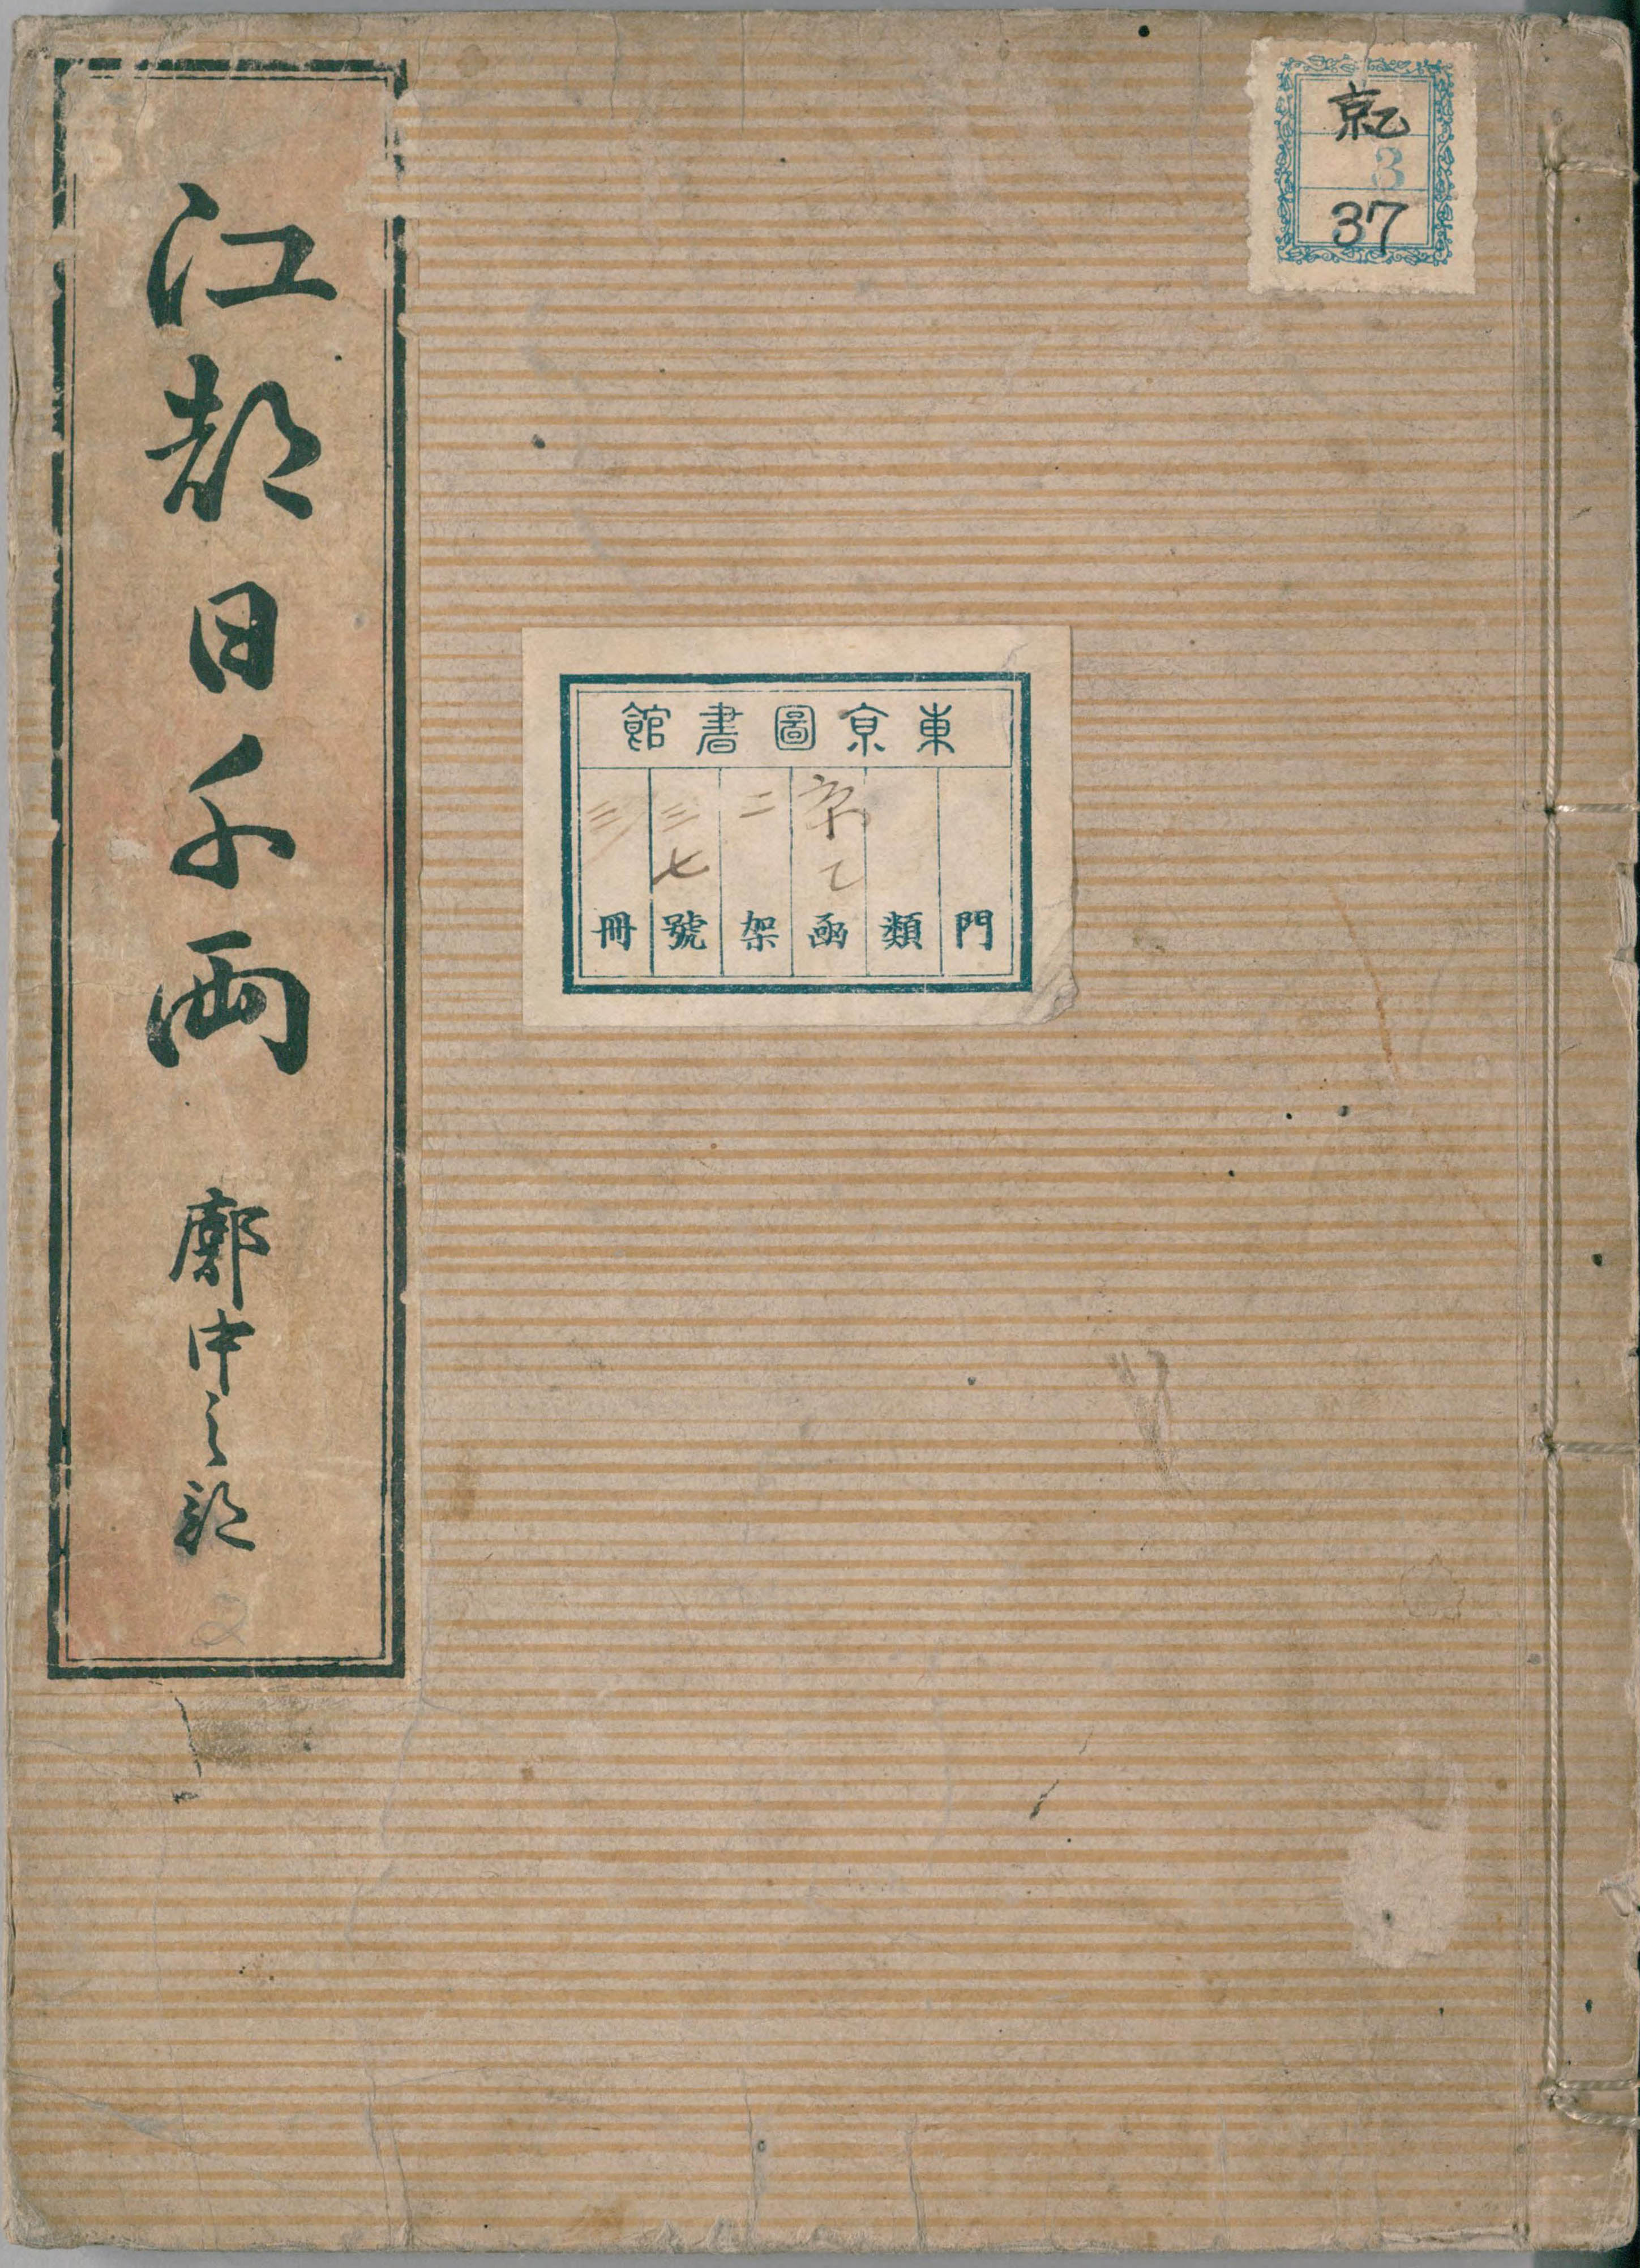 江都日千両　廓中之部
2
京乙
3
37
東京圖書館
門
類
函　京乙
架　二
號　三七
冊　三